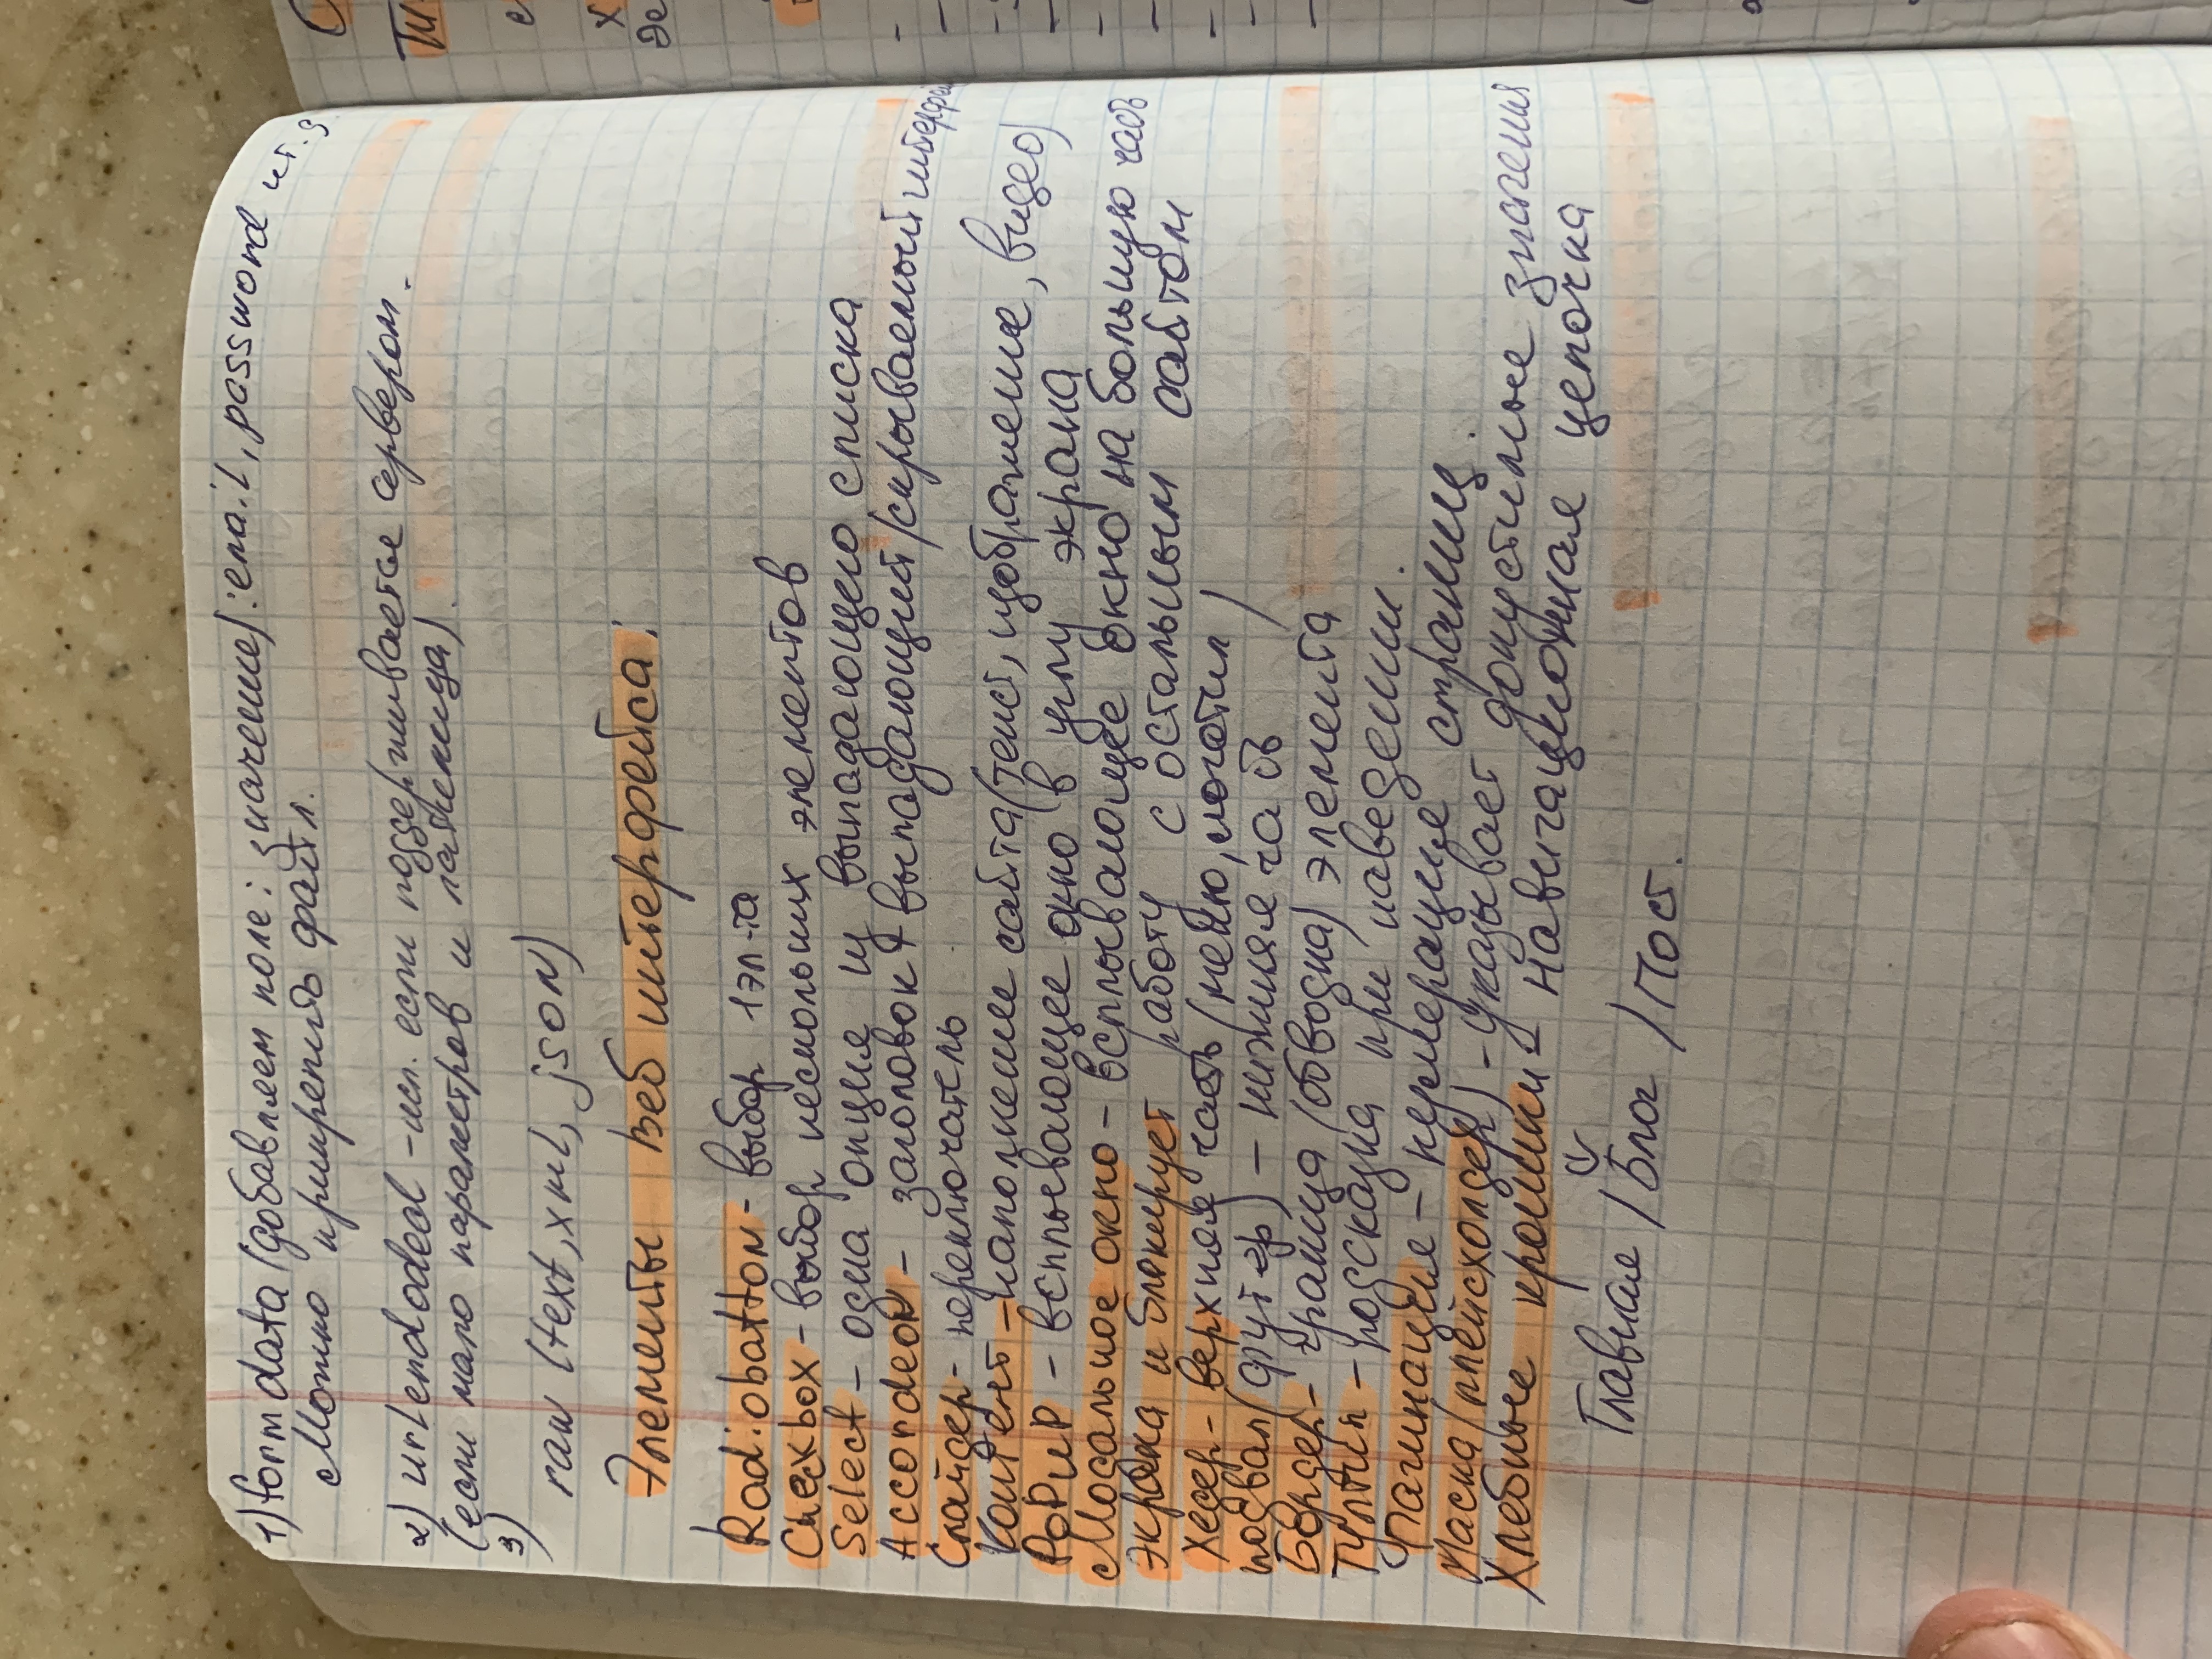 1) formdata (добавляем поле: значение): email, password и т.д
Можно прикрепить файл.
2) urlendoded - исп. если поддерживается сервером.
(если мало параметров и латиница).
3)
raw (text, xml, jsoN)
Элементы веб интерфейса:
Radiobatton - выбор 1 эл-та
Checkbox - выбор нескольких элементов
Select - одна опция из выпадающего списка
Accordeon - заголовок + выпадающий/скрываемый интерфей
Слайдер - переключатель
Контент - наполнение сайта (текст, изображение, видео)
PoPuP - всплывающее окно в углу экрана
Модальное окно - всплывающее окно на большую часть
экрана и блокирует работу с остальным сайтом
Хедер - верхняя часть (меню, логотип)
подвал (футер) - нижняя часть
Бордер - граница (обводка) элемента
Тултип - подсказка при наведении.
Пагинация - нумерация страниц.
Маска (плейсхолдер) - указывает допустимые значения
Хлебные крошки - навигационная цепочка
Главная / Блог / Пост.